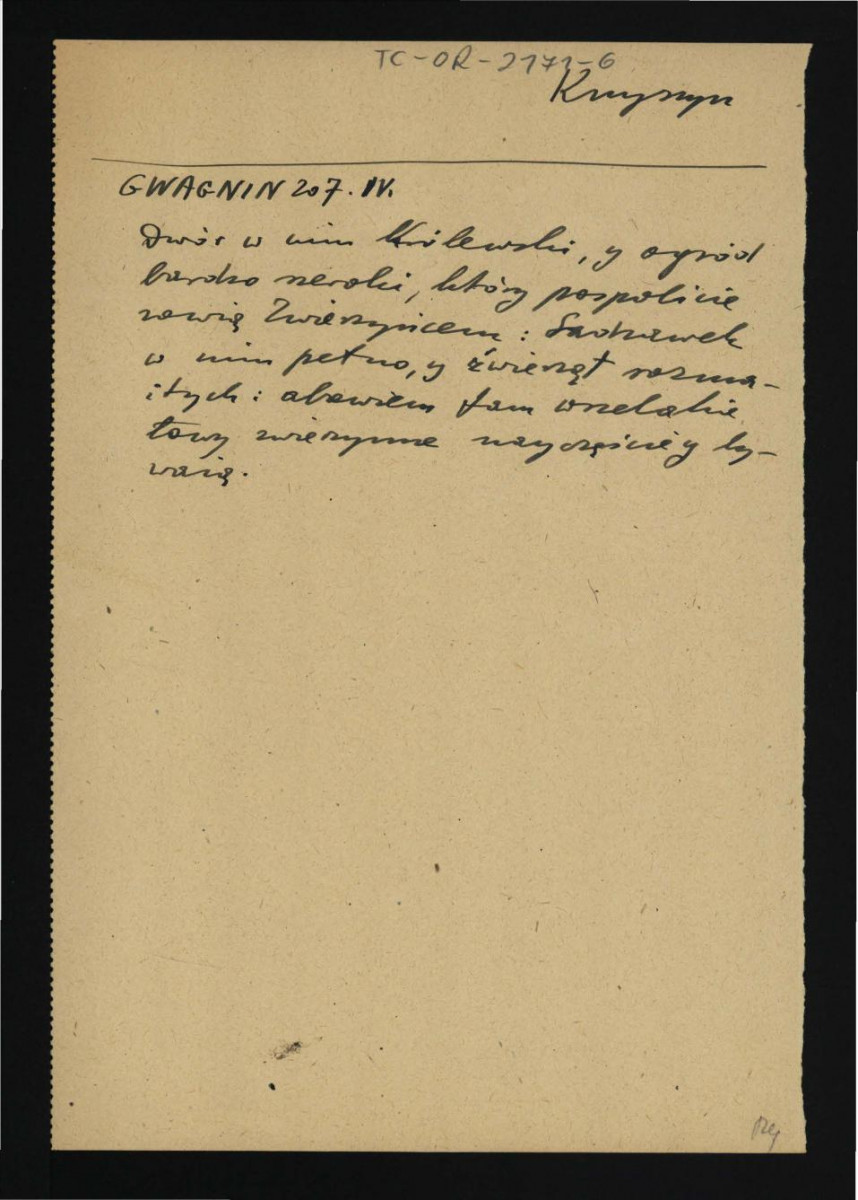 TC-OR-2171-6
Knyszyn
GWAGNIN 207. IV.
Dwór w nim Królewski, y ogród
bardzo szeroki, który pospolicie
zowią Zwierzyńcem: Sadzawek
w nim pełno, y źwierząt rozma-
itych: abowiem tam wszelakie
łowy zwierzynne nayczęściey by-
waią.